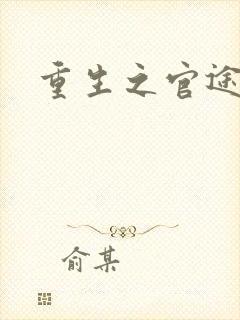 重生之官途
俞某